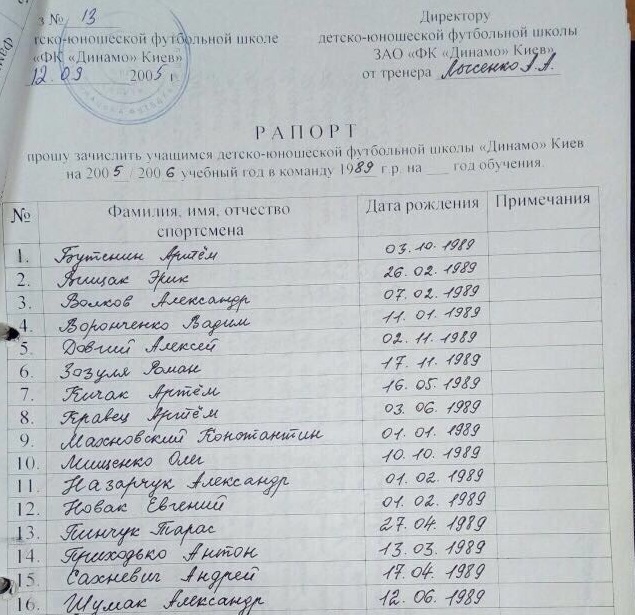 з № 13
тско-юношеской футбольной школе
«ФК «Динамо» Киев»
12.09 2005 г.
Директору
детско-юношеской футбольной школы
ЗАО «ФК «Динамо» Киев»
от тренера Лысенко А.А.
РАПОРТ
прошу зачислить учащимся детско-юношеской футбольной школы «Динамо» Киев
на 2005 / 2006 учебный год в команду 1989 г.р. на ___ год обучения.
№ Фамилия, имя, отчество спортсмена Дата рождения Примечания
1. Бутенин Артём 03.10.1989
2. Вищак Эрик 26.02.1989
3. Волков Александр 07.02.1989
4. Воронченко Вадим 11.01.1989
5. Довгий Алексей 02.11.1989
6. Зозуля Роман 17.11.1989
7. Кичак Артём 16.05.1989
8. Кравец Артём 03.06.1989
9. Махновский Константин 01.01.1989
10. Мищенко Олег 10.10.1989
11. Назарчук Александр 01.02.1989
12. Новак Евгений 01.02.1989
13. Пинчук Тарас 27.04.1989
14. Приходько Антон 13.03.1989
15. Сахневич Андрей 17.04.1989
16. Шумак Александр 12.06.1989